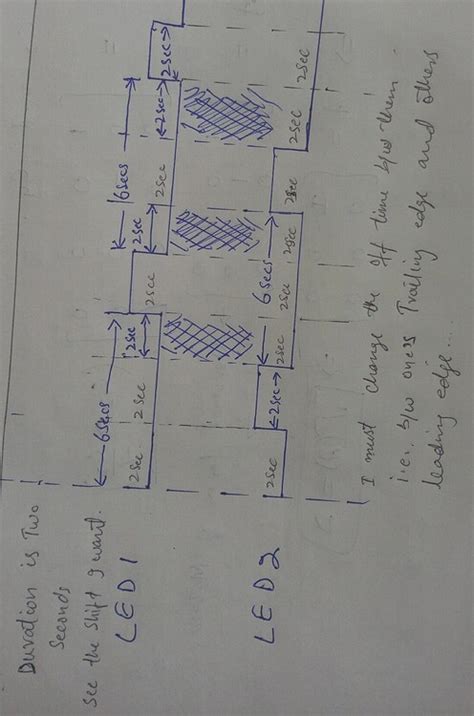 Duration is Two
seconds
see the shift I want.
LED1
6secs
6secs
2sec
2sec
2sec
2sec
2sec
2sec
2sec
2sec
2sec
2sec
LED2
6secs
2sec
2sec
2sec
2sec
2sec
2sec
2sec
2sec
I must change the off time b/w them
i.e., b/w one's Trailing edge and others
leading edge....